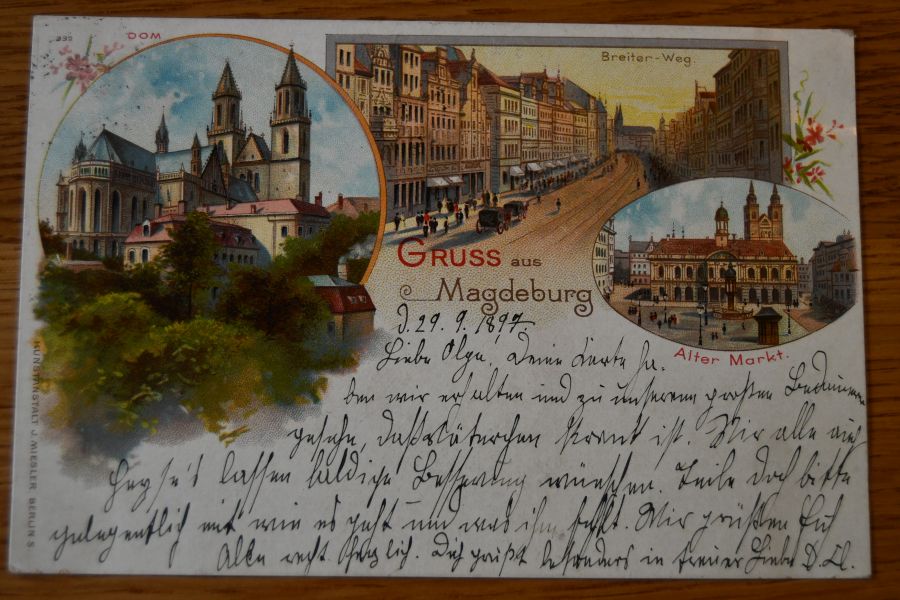 332
DOM
Breiter-Weg.
GRUSS aus
Magdeburg
Alter Markt.
KUNSTANSTALT J. MIESLER, BERLIN S
d. 29. 9. 1897.
Liebe Olga. Deine Karte ha-
ben wir erhalten und zu unserem großen Bedauern
gesehen, daß Väterchen krank ist. Wir alle auch
Heyse's lassen baldige Besserung wünschen. Teile doch bitte
gelegentlich mit wie es geht und was ihm fehlt. Wir grüßen Euch
Alle recht herzlich. Dich grüßt besonders in treuer Liebe D.